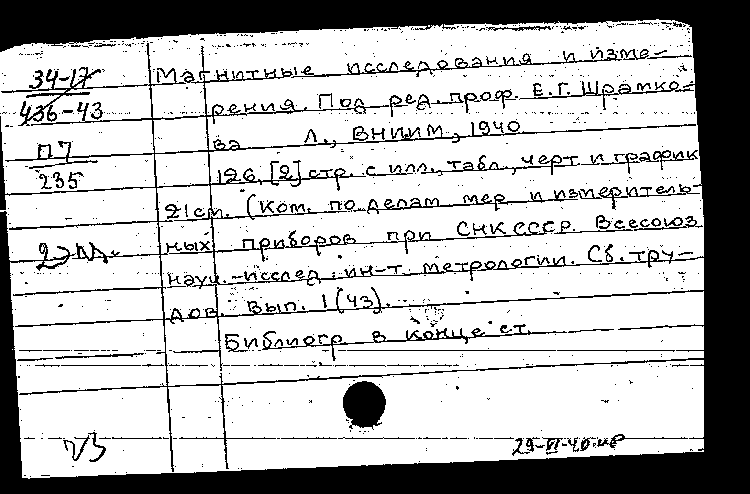 34-17
436-43
П7
235
2 экз.
Магнитные исследования и изме-
рения. Под ред. проф. Е.Г. Шрамко-
ва Л., ВНИИМ, 1940
126, [2] стр. с илл., табл., черт и график
21см. (Ком. по делам мер и измеритель-
ных приборов при СНК СССР. Всесоюз
науч.-исслед. ин-т. метрологии. Сб. тру-
дов. Вып. 1(43).
Библиогр в конце ст.
29-VI-40